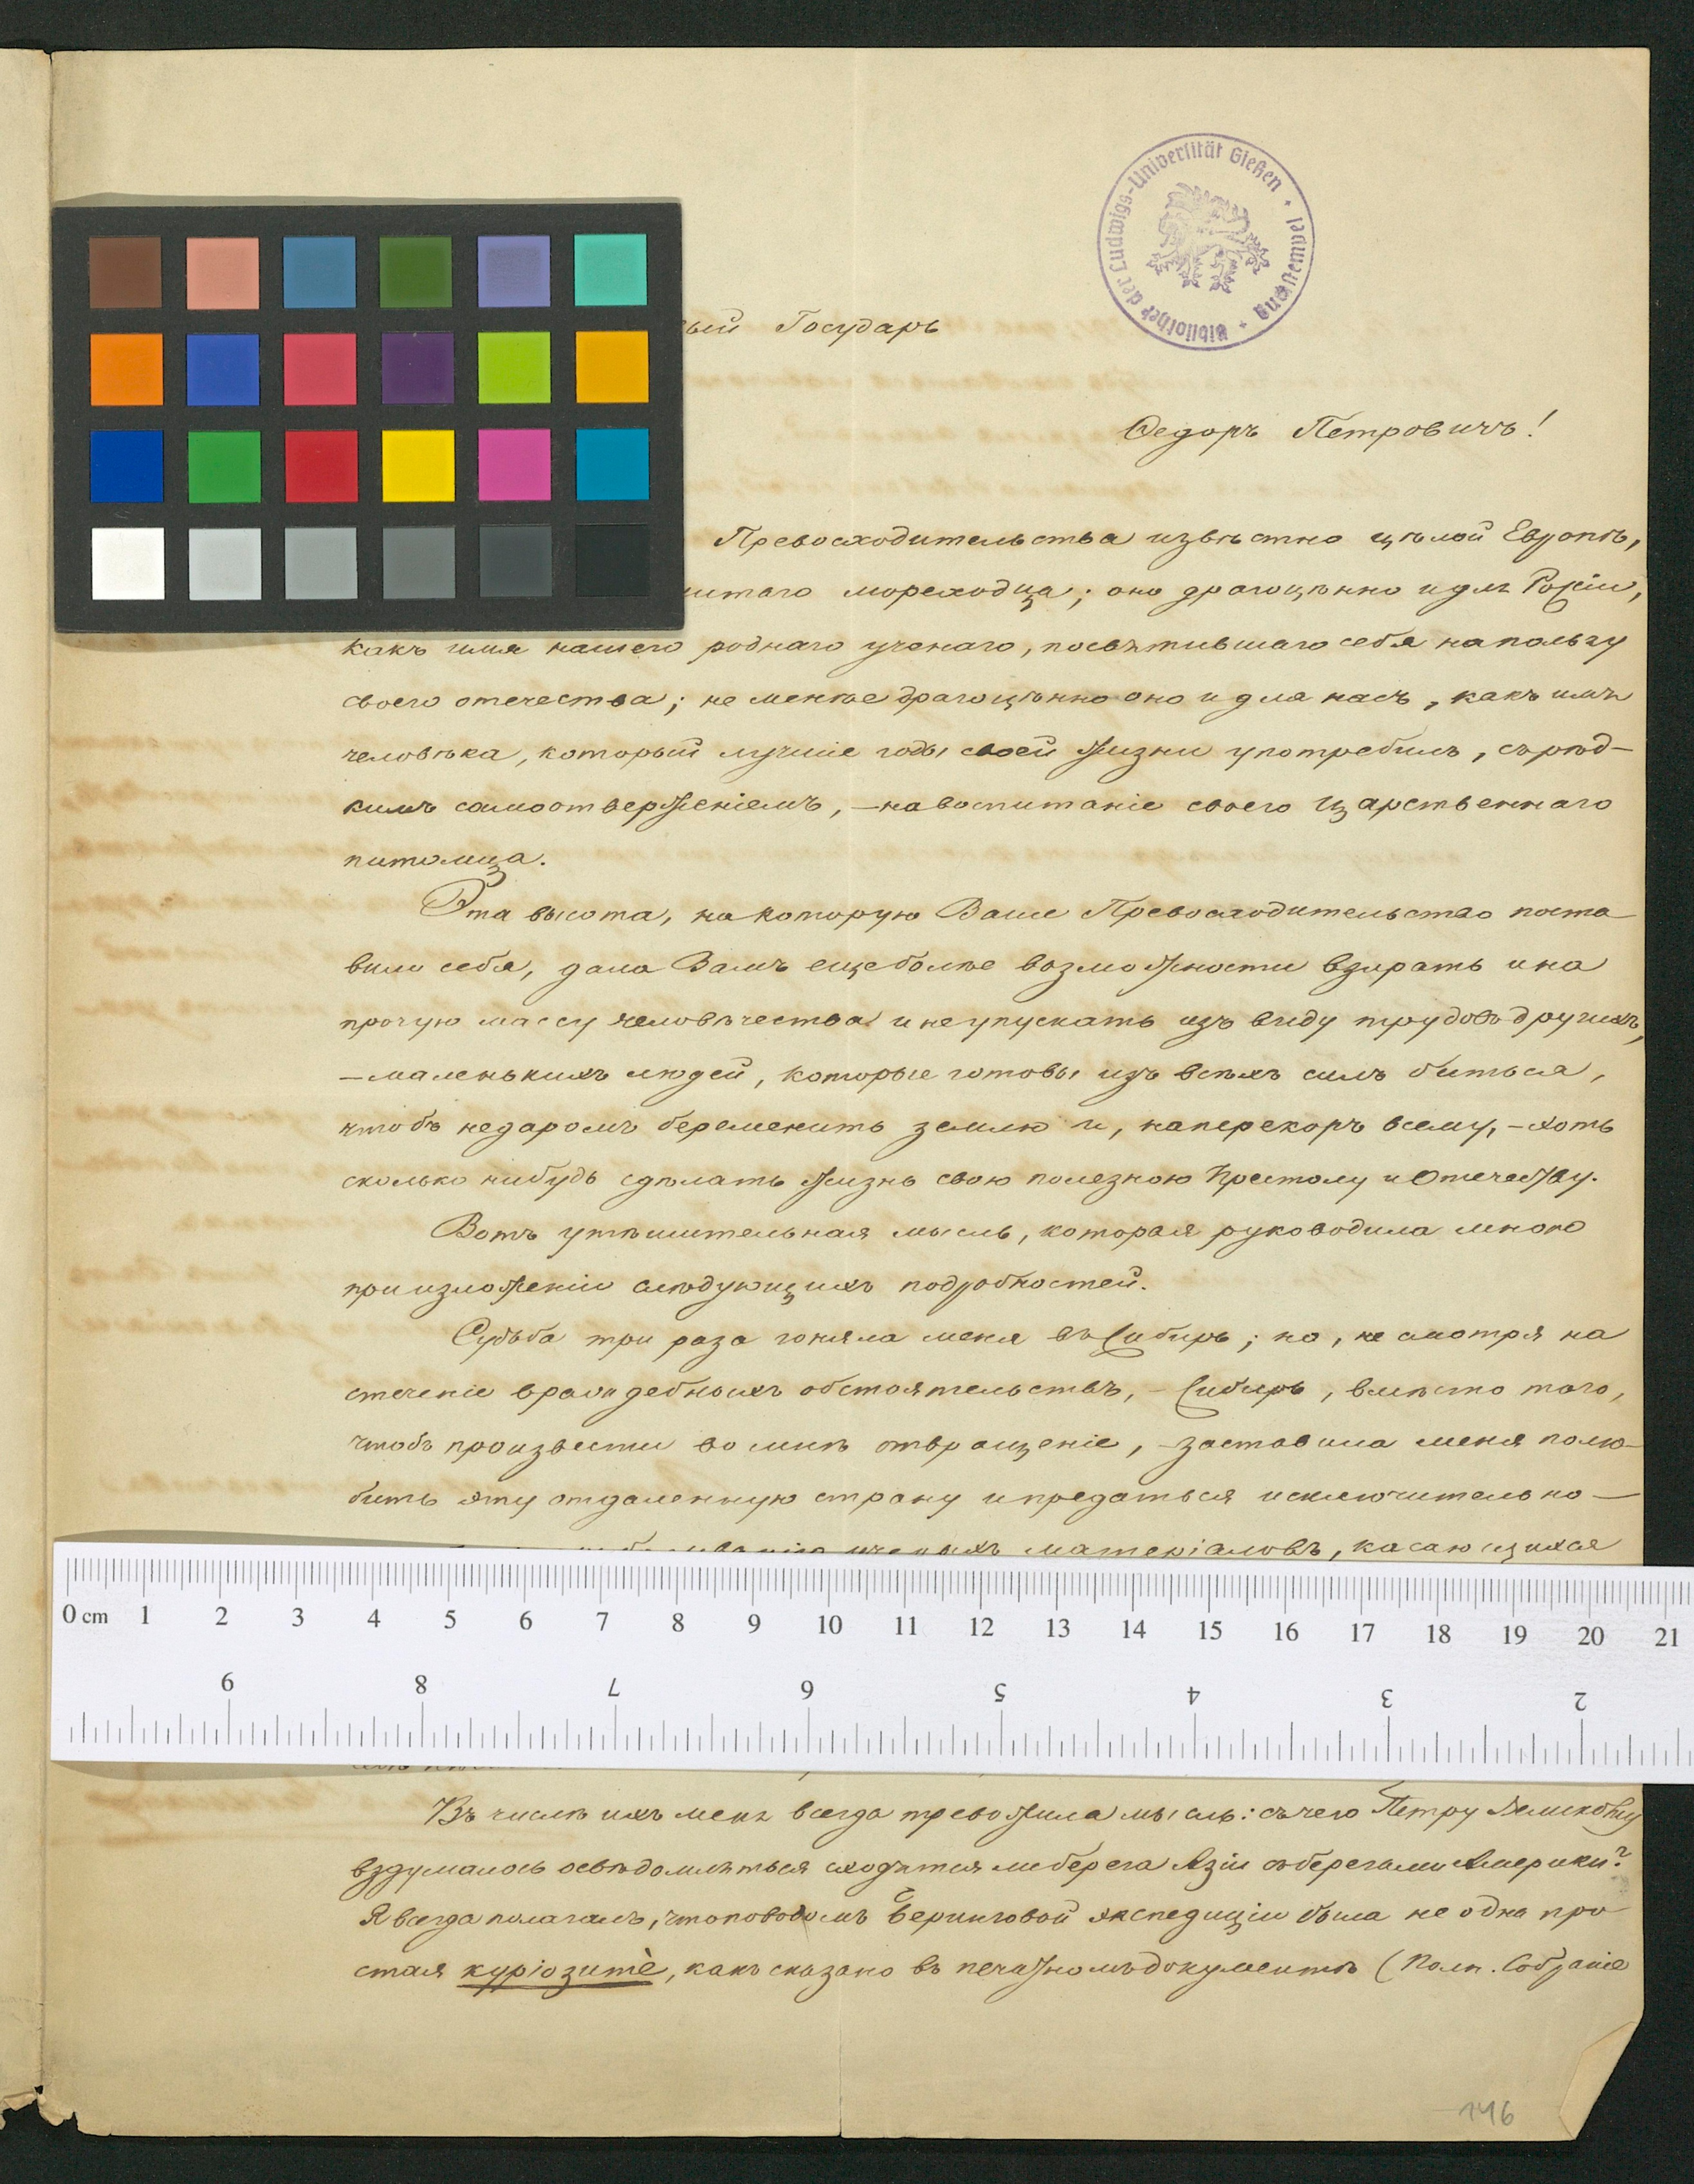 Bibliothek der Ludwigs-Universität Gießen
Государь
Ѳедоръ Петровичъ!
Превосходительства извѣстно цѣлой Европѣ,
мореходца; оно драгоцѣнно и для Росіи,
какъ имя нашего роднаго ученаго, посвятившаго себя на пользу
своего отечества; не менѣе драгоцѣнно оно и для насъ, какъ имя
человѣка, который лучшіе годы своей жизни употребилъ, съ рѣд-
кимъ самоотверженіемъ, – на воспитаніе своего Царственнаго
питомца.
Эта высота, на которую Ваше Превосходительство поста
вили себя, дала Вамъ еще болѣе возможности взирать и на
прочую массу человѣчества и не упускать изъ виду трудовъ другихъ,
– маленькихъ людей, которые готовы изъ всѣхъ силъ биться,
чтобъ не даромъ бременить землю и, наперекоръ всему, – хоть
сколько нибудь сдѣлать жизнь свою полезною Престолу и Отечеству.
Вотъ утѣшительная мысль, которая руководила мною
при изложеніи слѣдующихъ подробностей.
Судьба три раза гоняла меня въ Сибирь; но, не смотря на
стеченіе враждебныхъ обстоятельствъ, – Сибирь, вмѣсто того,
чтобъ произвести во мнѣ отвращеніе, – заставила меня полю-
бить эту отдаленную страну и предаться исключительно –
ученыхъ матеріаловъ, касающихся
0 cm 1 2 3 4 5 6 7 8 9 10 11 12 13 14 15 16 17 18 19 20 21
9 8 7 6 5 4 3 2
Въ числѣ ихъ меня всегда тревожила мысль: съ чего Петру Великому
вздумалось освѣдомляться сходятся ли берега Азіи съ берегами Америки?
Я всегда полагалъ, что поводомъ Беринговой экспедиціи была не одна про
стая куріозитѐ, какъ сказано въ печатномъ документѣ (Полн. Собраніе
146